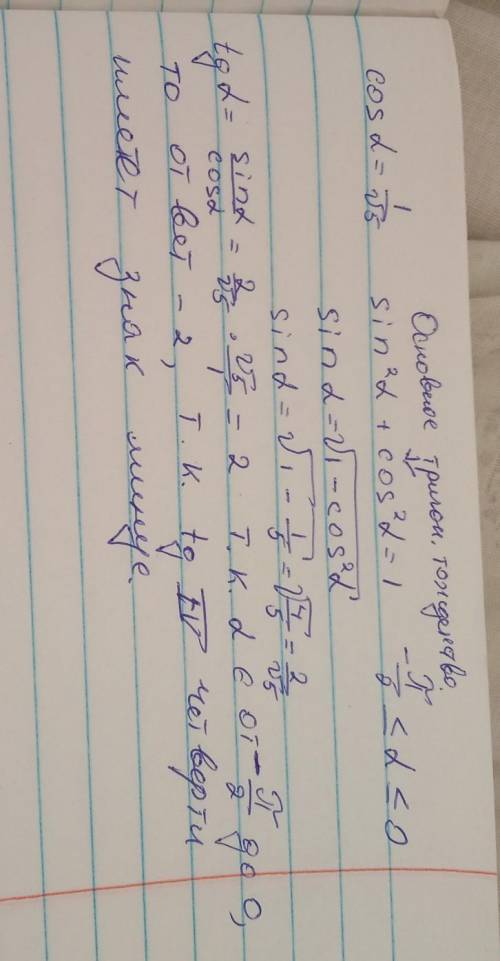 Основное тригон. тождество.
cos α = 1/√5 sin²α + cos²α = 1 -π/2 ≤ α ≤ 0
sin α = √1 - cos²α
sin α = √1 - 1/5 = √4/5 = 2/√5
tg α = sin α/cos α = 2/√5 · √5/1 = 2 т.к. α ∈ от -π/2 до 0,
то ответ -2, т.к. tg IV четверти
имеет знак минус.